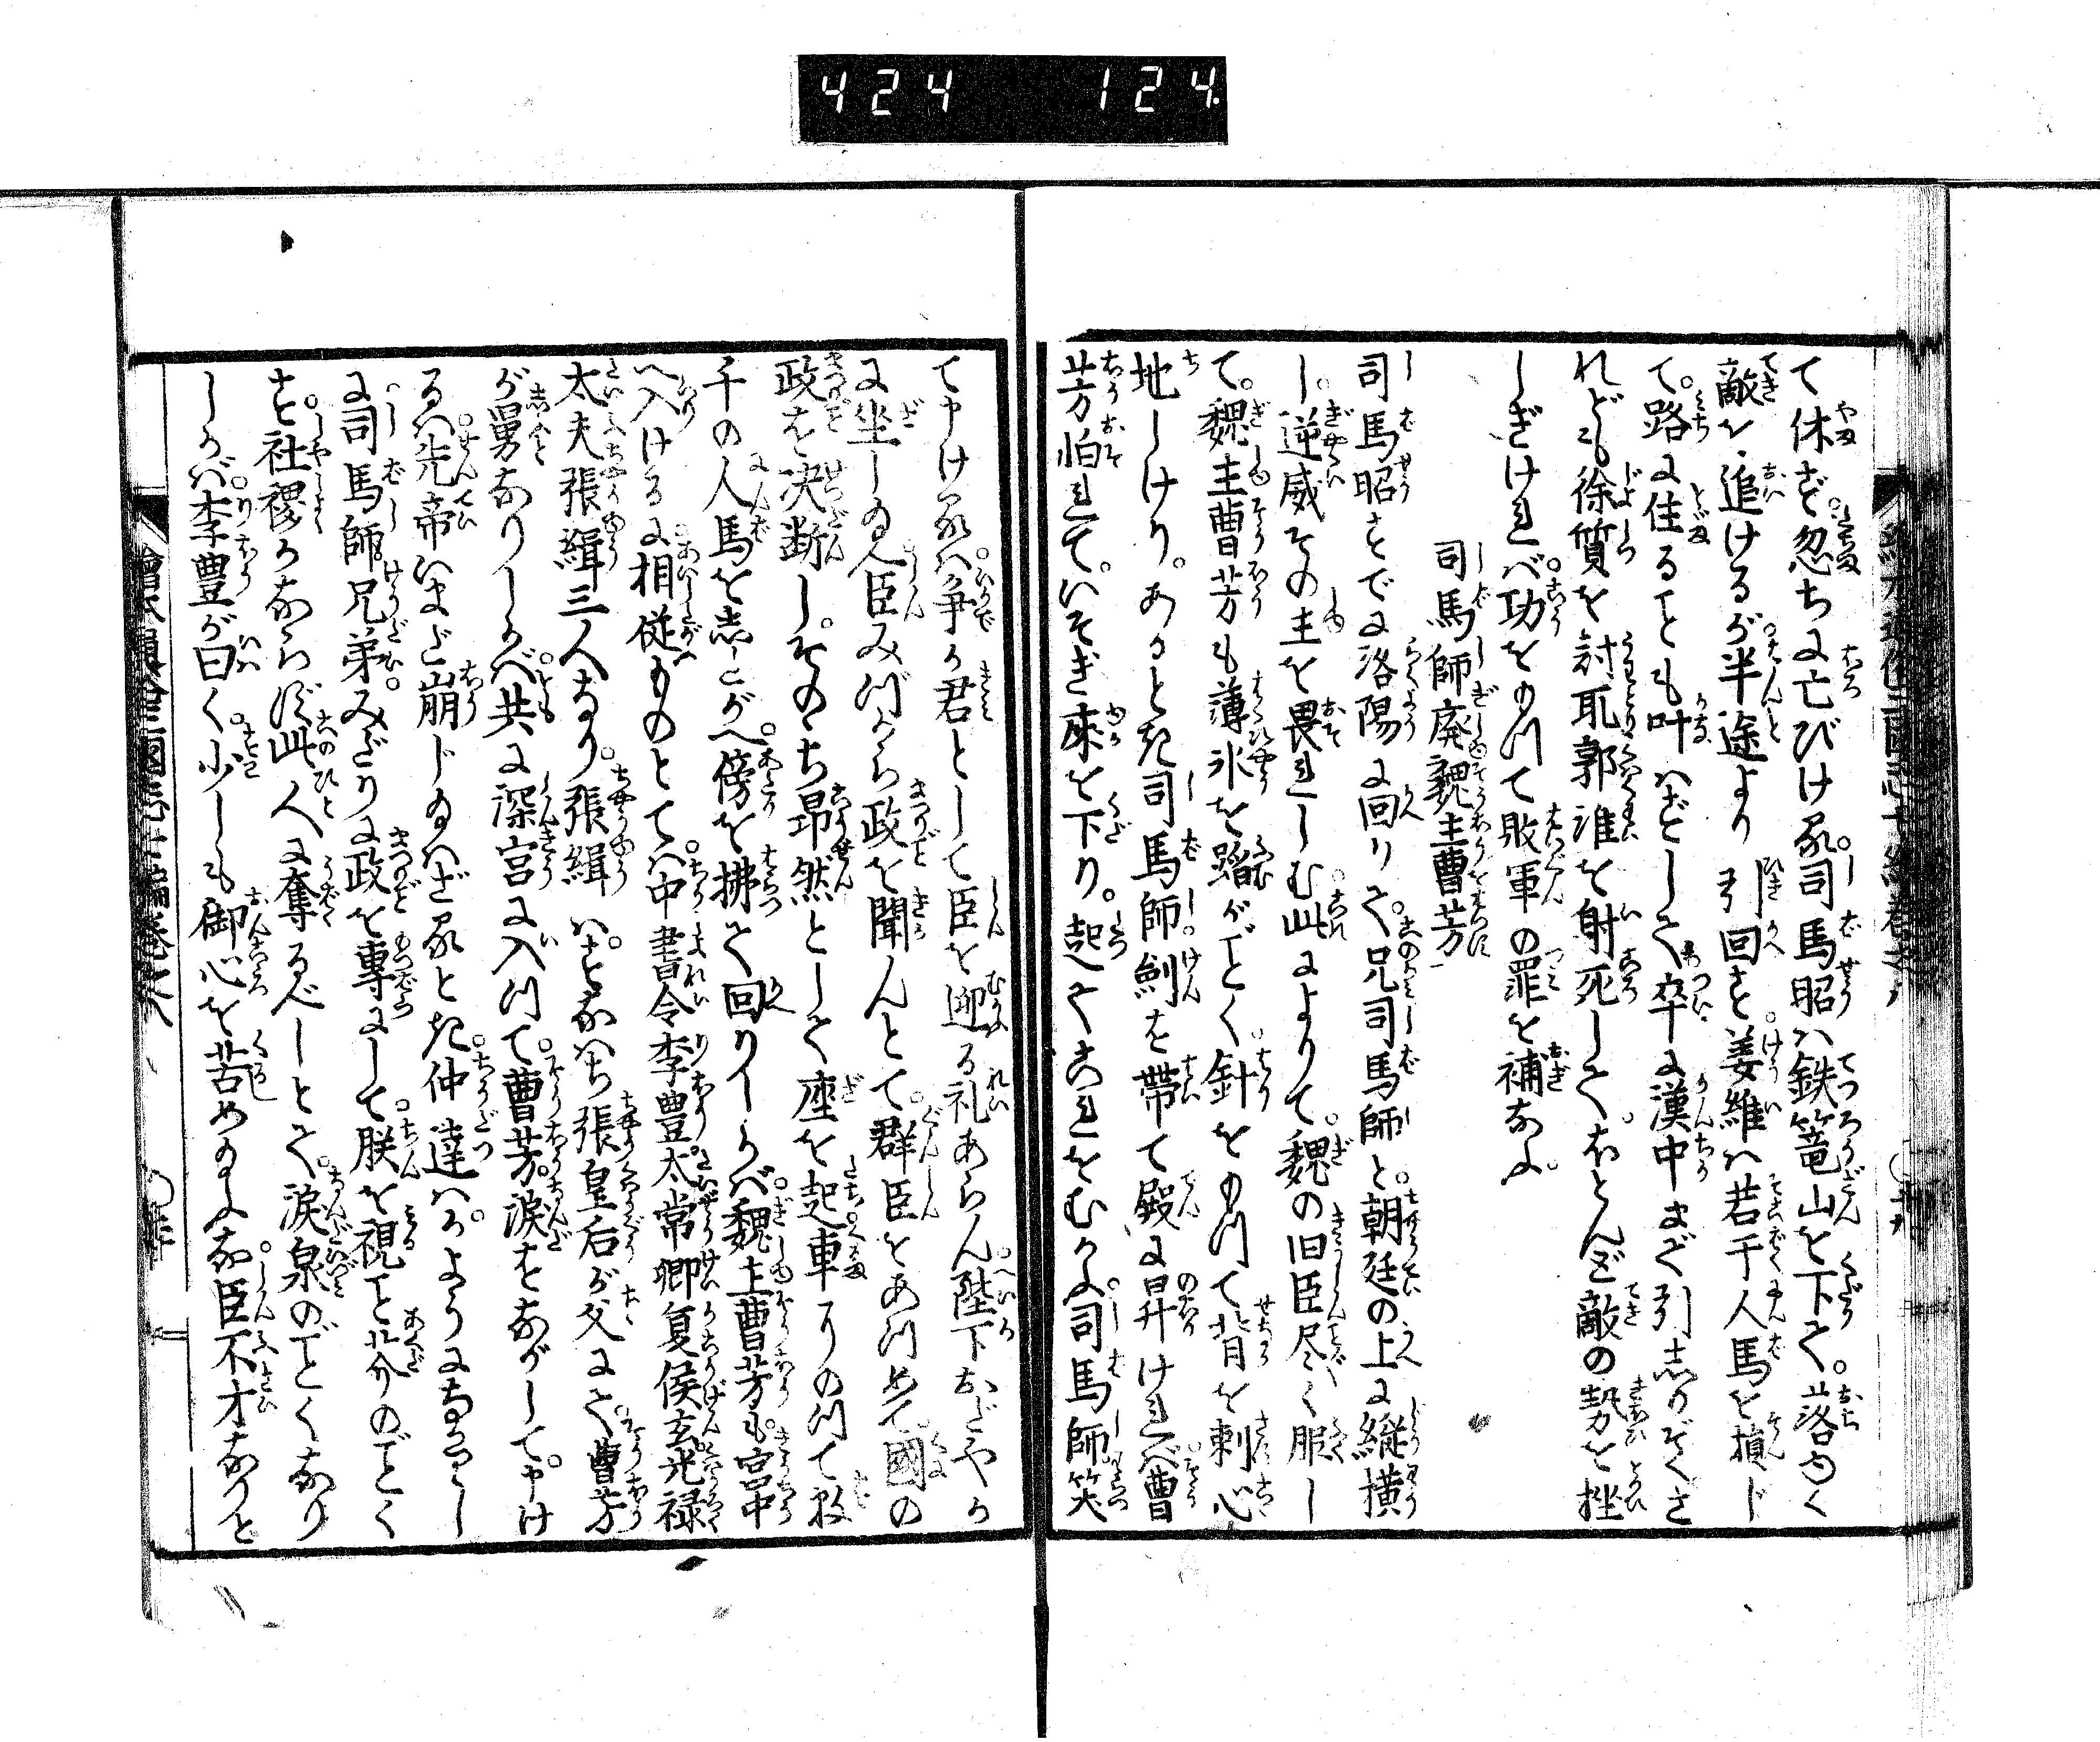 424 124.
て休ず忽ち又亡びけり。司馬昭ハ鉄篭山を下て。落ゆく
敵を追けるが半途より引回す。姜維ハ若干人馬を損じ
て。路に住ることも叶ハずして卒に漢中まで引しりぞくさ
れども徐質を討取郭淮を射死して。ほとんど敵の勢を挫
しぎければ。功をもつて敗軍の罪を補なふ。
司馬師廃魏主曹芳
司馬昭すでに洛陽に回りて。兄司馬師と。朝廷の上に縦横
し。逆威その主を畏れしむ。此によりて。魏の旧臣尽く服し
て。魏主曹芳も薄氷を蹈がごとく。針をもつて背を刺心
地しけり。あるとき司馬師。剣を帯て殿に昇ければ。曹
芳怕れて。いそぎ床を下り。起てこれをむかふ。司馬師笑
て申けるハ。争か君として臣を迎る礼あらん。陛下おだやか
に坐し給へ臣みづから政を聞んとて。群臣をあつめて。國の
政を決断し。そのゝち昂然として座を起車にのつて数
千の人馬をしたがへ。傍を拂て回りしかば。魏主曹芳も。宮中
へ入けるに。相従ものとてハ。中書令李豊。太常卿夏侯玄。光禄
太夫張緝三人なり。張緝ハ。すなハち張皇后が父にて。曹芳
が舅なりしかべ。共に深宮に入つて。曹芳。涙をながして。申け
るハ。先帝いまだ崩じ給ハざるとき。仲達ハ。かようになかりし
に司馬師兄弟。みだりに政を專にして。朕を視こと芥のごとく
す。社稷かならず此人に奪るべしとて。涙泉のごとくなり
しかバ。李豊が曰く。少しも御心を苦め給ふな。臣不才なりと